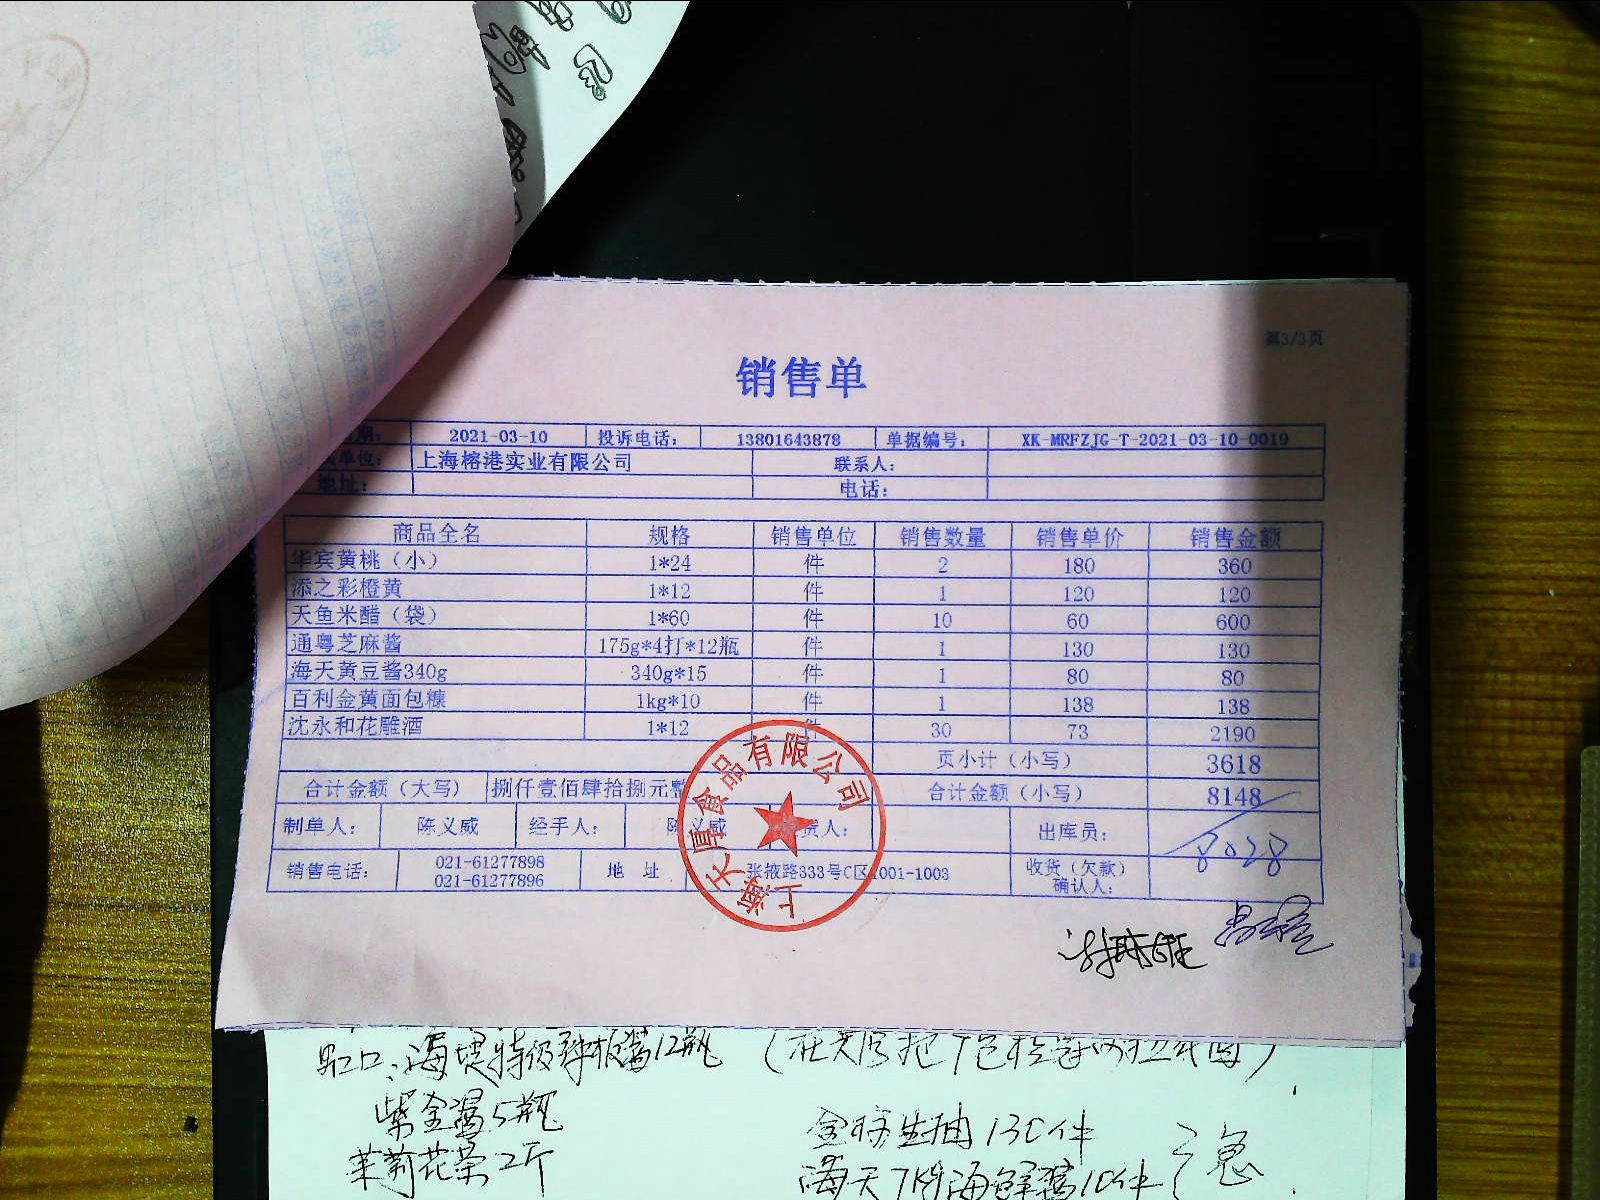 第3/3页
销售单
期： 2021-03-10 投诉电话： 13801643878 单据编号： XK-MRFZJG-T-2021-03-10-0019
单位： 上海榕港实业有限公司 联系人：
地址： 电话：
商品全名 规格 销售单位 销售数量 销售单价 销售金额
华宾黄桃（小） 1*24 件 2 180 360
添之彩橙黄 1*12 件 1 120 120
天鱼米醋（袋） 1*60 件 10 60 600
通粤芝麻酱 175g*4打*12瓶 件 1 130 130
海天黄豆酱340g 340g*15 件 1 80 80
百利金黄面包糠 1kg*10 件 1 138 138
沈永和花雕酒 1*12 件 30 73 2190
页小计（小写） 3618
合计金额（大写） 捌仟壹佰肆拾捌元整 合计金额（小写） 8148
制单人： 陈义威 经手人： 陈义威 货人： 出库员：
8028
销售电话： 021-61277898 地 址 张掖路333号C区1001-1003 收货（欠款）
021-61277896 确认人：
上海天厚食品有限公司
虹口：海堤特级辣椒酱12瓶
紫金酱5瓶
金标生抽130件 急
茉莉花茶2斤
海天7KG海鲜酱10件